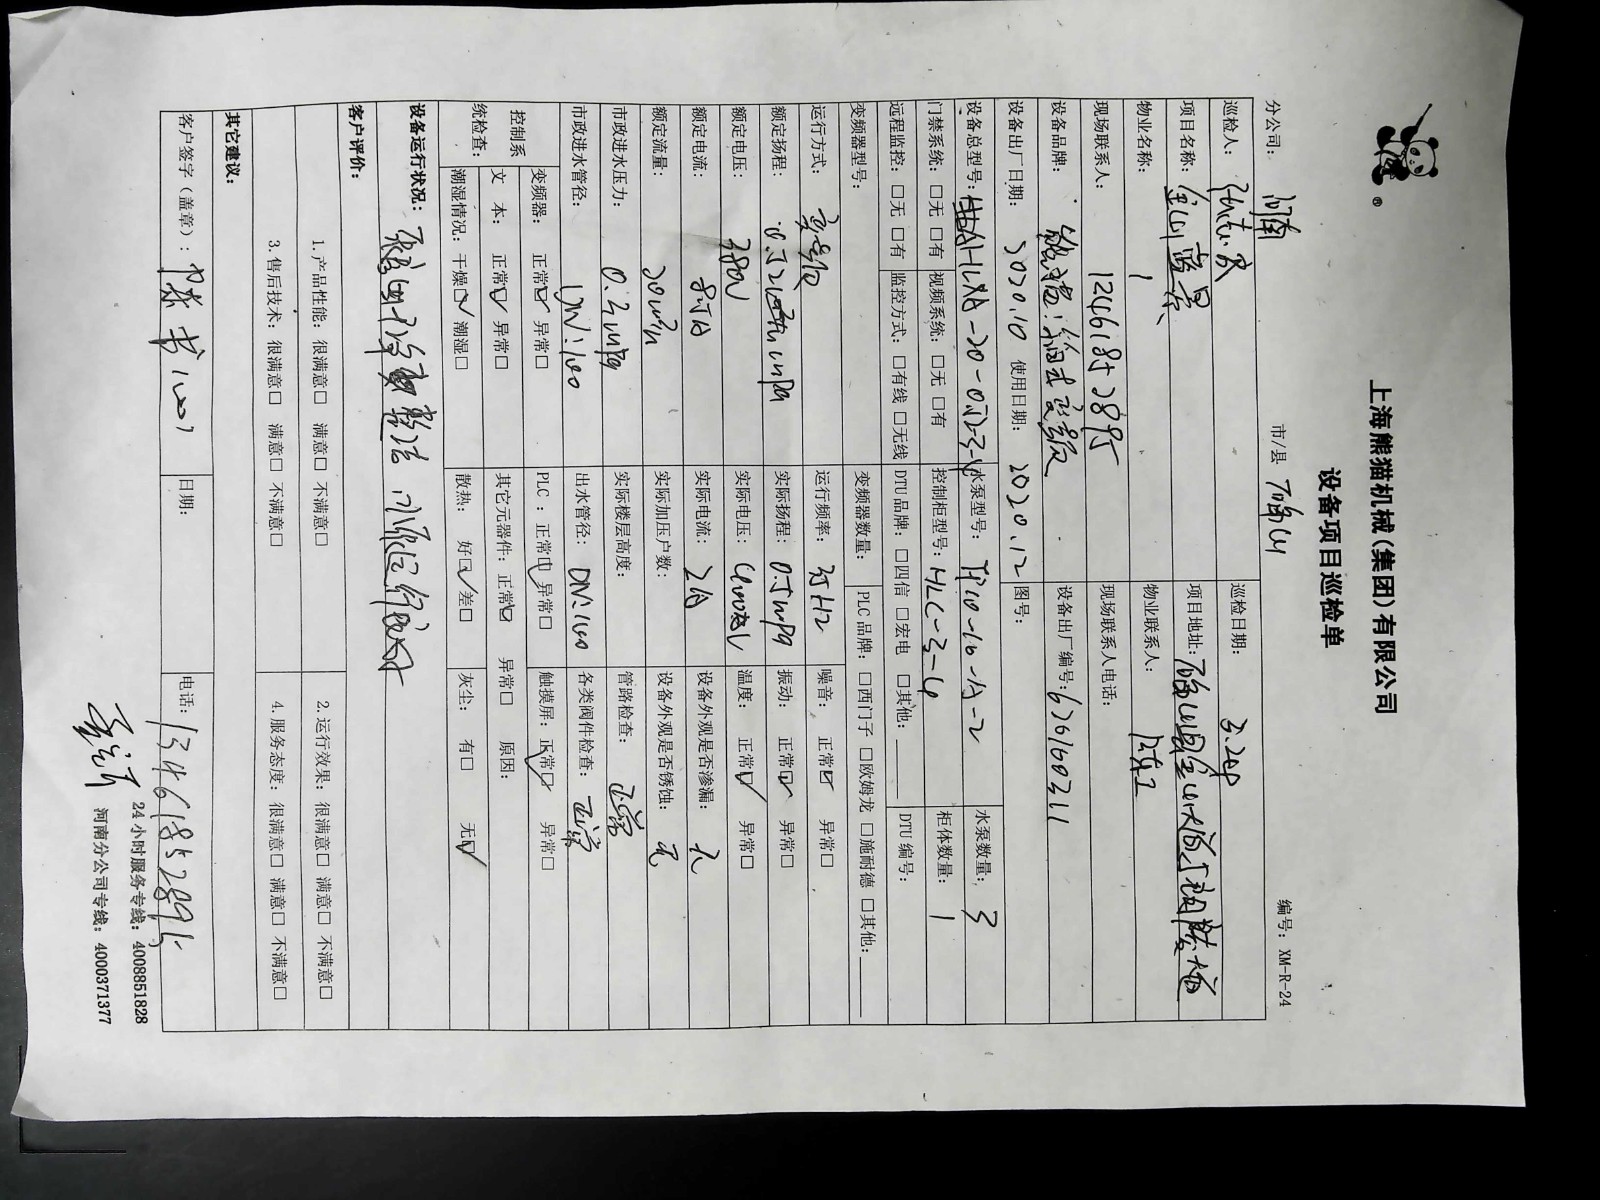 上海熊猫机械(集团)有限公司
设备项目巡检单
分公司: 河南 市/县 确山 编号: XM-R-24
巡检人: 巡检日期: 3.24
项目名称: 金山 项目地址: 确山县
物业名称: / 物业联系人: 陈工
现场联系人: 13461852895 现场联系人电话:
设备品牌: 熊猫 变频 设备出厂编号: 626160311
设备出厂日期: 2020.10 使用日期: 2020.12 图号:
设备总型号: -20-0.52-3-4 水泵型号: -10-A-2 水泵数量: 3
门禁系统: □无 □有 视频系统: □无 □有 控制柜型号: HLC-3-4 柜体数量: 1
远程监控: □无 □有 监控方式: □有线 □无线 DTU品牌: □四信 □宏电 □其他:____ DTU编号:
变频器型号: 变频器数量: PLC品牌: □西门子 □欧姆龙 □施耐德 □其他:____
运行方式: 变频 运行频率: 35HZ 噪音: 正常☑ 异常□
额定扬程: 0.52 mpa 实际扬程: 0.5mpa 振动: 正常☑ 异常□
额定电压: 380V 实际电压: 400V 温度: 正常☑ 异常□
额定电流: 实际电流: 2A 设备外观是否渗漏: 无
额定流量: 20m³/h 实际加压户数: 设备外观是否锈蚀: 无
市政进水压力: 0.2mpa 实际楼层高度: 管路检查: 正常
市政进水管径: DN:100 出水管径: DN:100 各类阀件检查: 正常
控制系统检查: 变频器: 正常☑ 异常□ PLC: 正常☑ 异常□ 触摸屏: 正常☑ 异常□
文 本: 正常☑ 异常□ 其它元器件: 正常☑ 异常□ 原因:
潮湿情况: 干燥☑ 潮湿□ 散热: 好☑ 差□ 灰尘: 有□ 无☑
设备运行状况: 整洁
客户评价:
1.产品性能: 很满意□ 满意□ 不满意□ 2.运行效果: 很满意□ 满意□ 不满意□
3.售后技术: 很满意□ 满意□ 不满意□ 4.服务态度: 很满意□ 满意□ 不满意□
其它建议:
客户签字(盖章): 日期: 电话: 13461852895
24小时服务专线: 4008851828
河南分公司专线: 4000371377